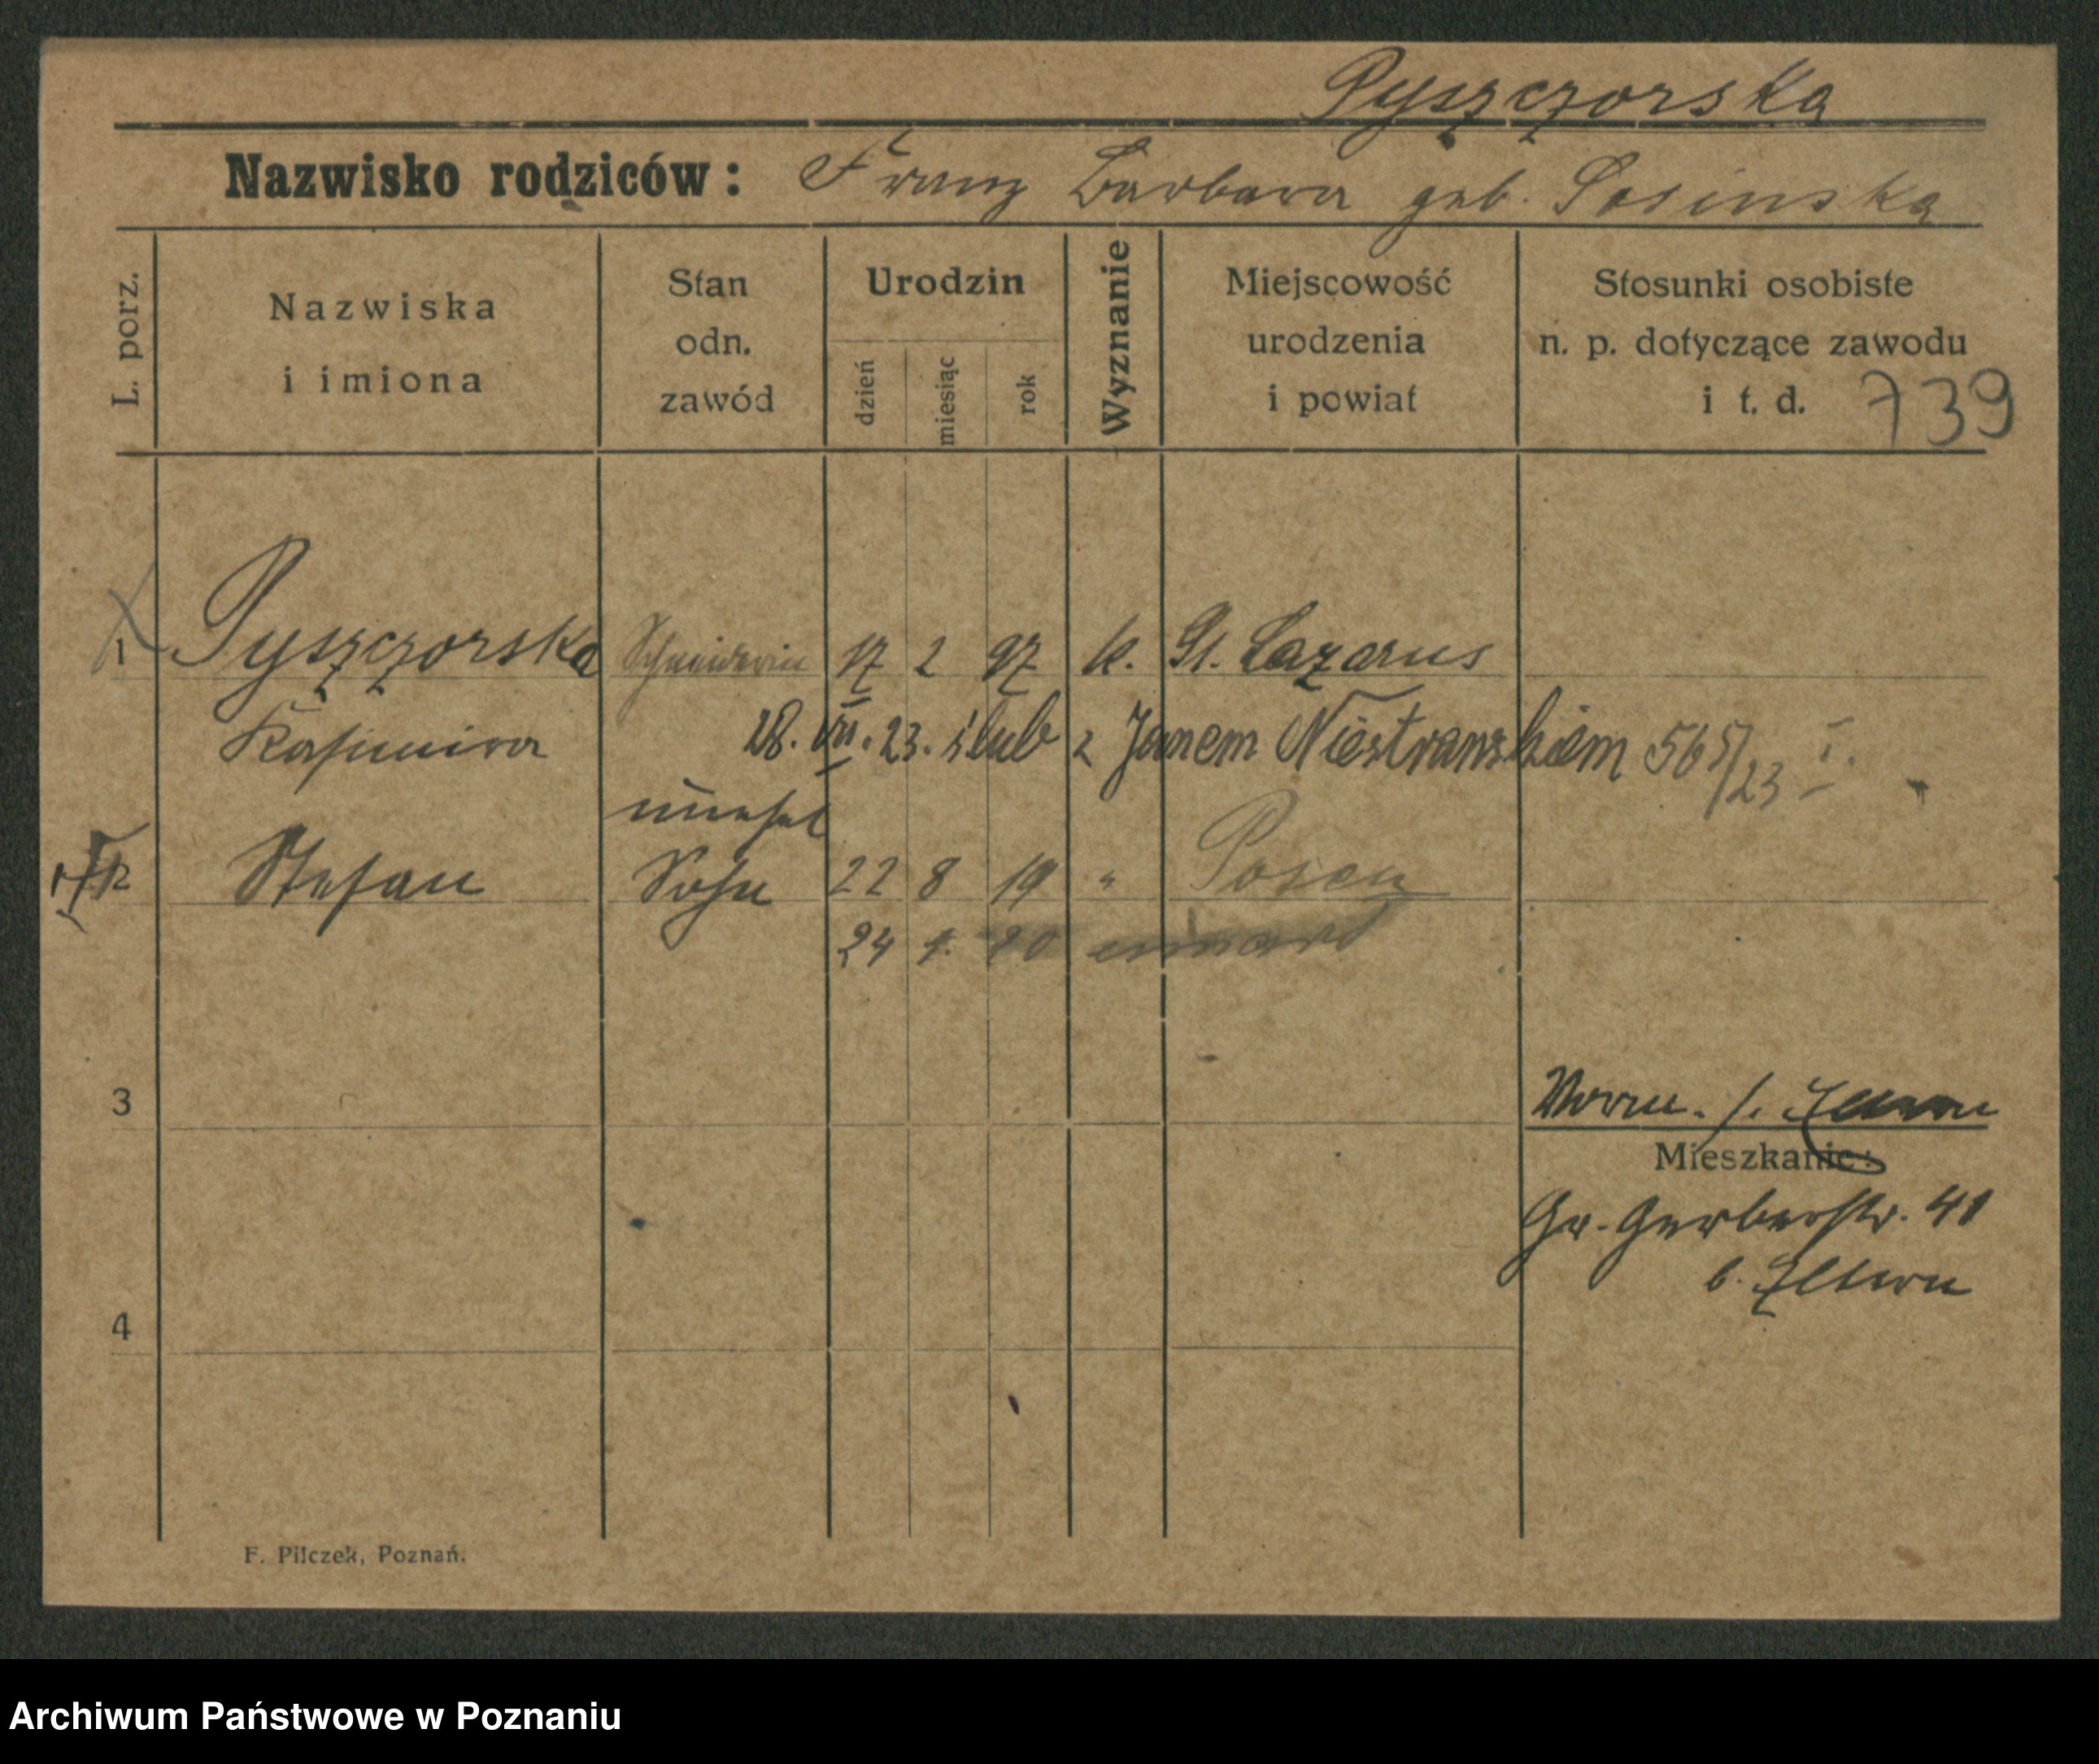 Pyszczorska
Nazwisko rodziców: Franz Barbara geb. Sosinska
L. porz.
Nazwiska
i imiona
Stan
odn.
zawód
Urodzin
dzień
miesiąc
rok
Wyznanie
Miejscowość
urodzenia
i powiat
Stosunki osobiste
n. p. dotyczące zawodu
i t. d. 739
1 Pyszczorska Schneiderin 17 2 97 k. St. Lazarus
Kasimira 28. VII. 23. ślub z Janem Niestrawskiem 565/23 I.
unehel
2 Stefan Sohn 22 8 19 " Posen
24 1. 20
3
Vorm. s. Eltern
Mieszkanie:
Gr. Gerberstr. 41
b. Eltern
4
F. Pilczek, Poznań.
Archiwum Państwowe w Poznaniu